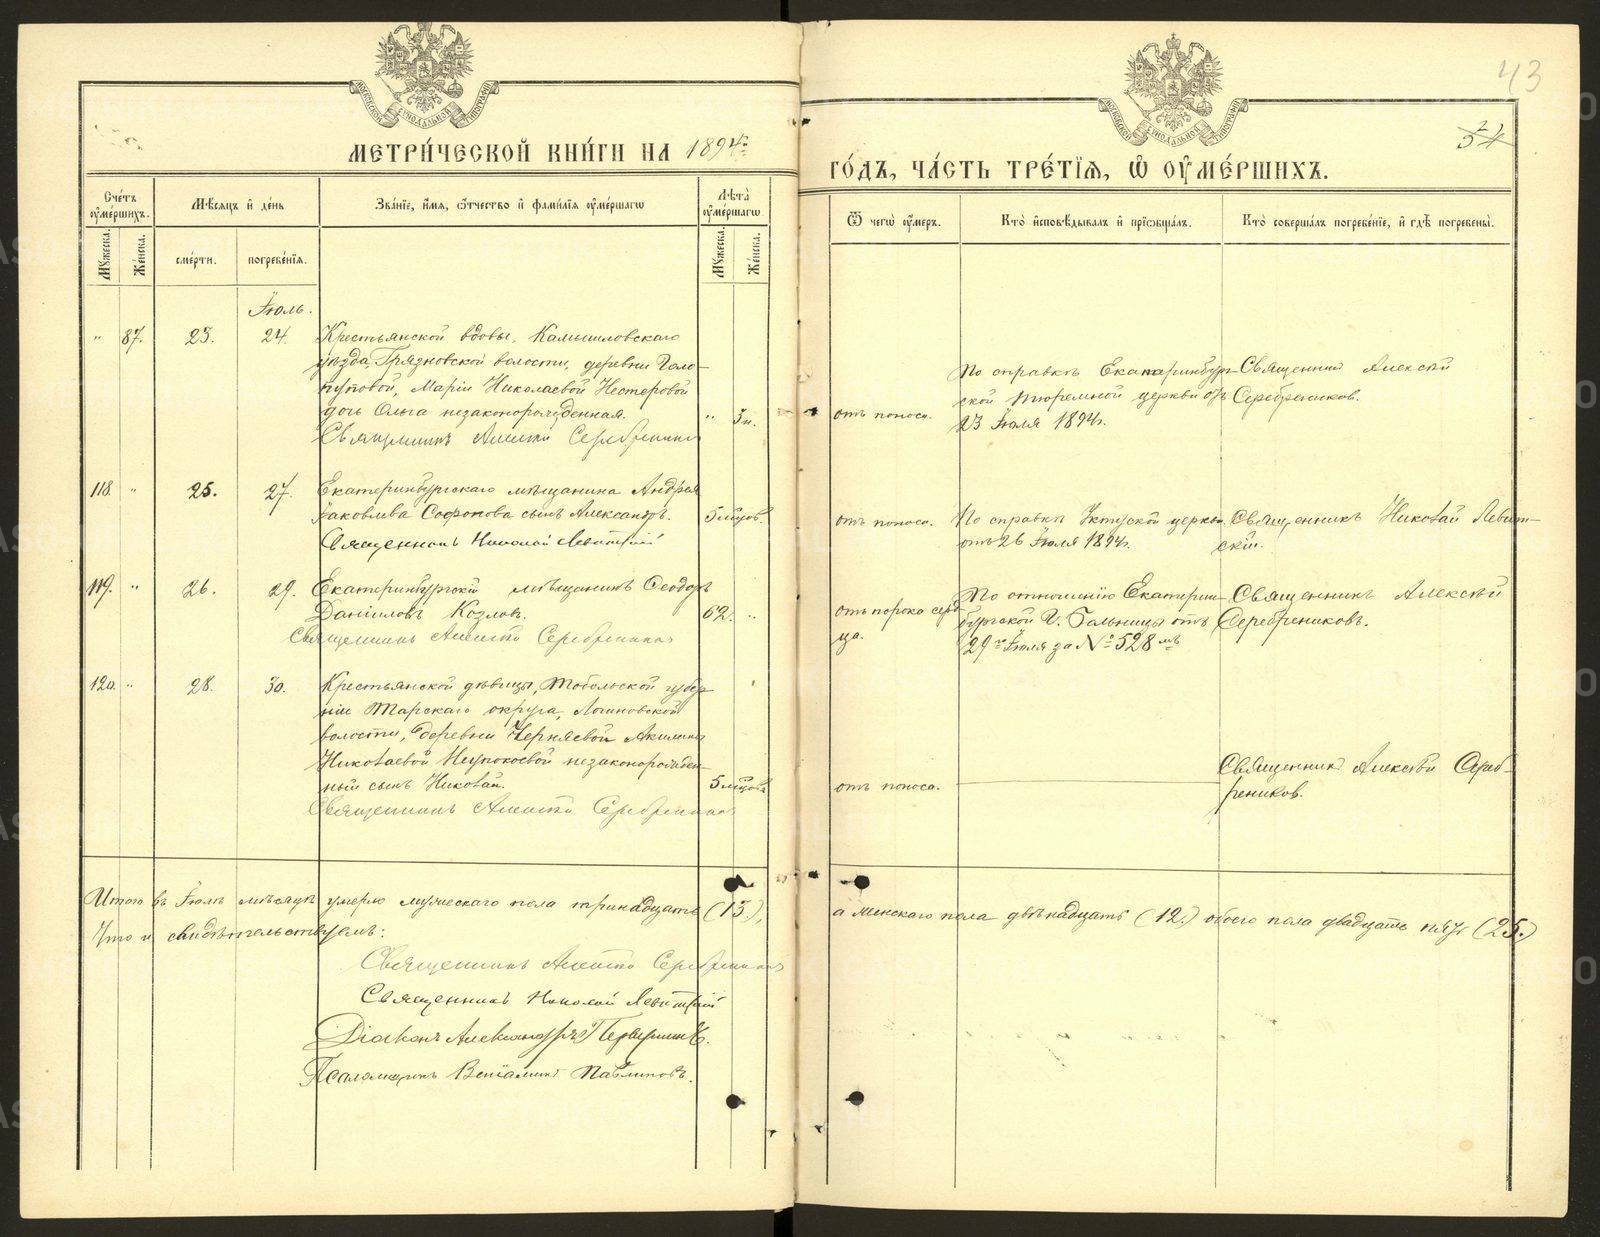 МОСКОВСКОЙ СѴНОДАЛЬНОЙ ТИПОГРАФІИ
МОСКОВСКОЙ СѴНОДАЛЬНОЙ ТИПОГРАФІИ
43
МЕТРИ́ЧЕСКОЙ КНИ́ГИ НА 1894
ГО́ДЪ, ЧА́СТЬ ТРЕ́ТІЯ, Ѡ҆ ОУ҆МЕ́РШИХЪ.
Сче́тъ оу҆ме́ршихъ.
Мꙋжеска. Же́нска.
Мѣ́сяцъ и҆ де́нь
сме́рти. погребе́нія.
Зва́ніе, и҆́мя, ѻ҆́тчество и҆ фами́лія оу҆ме́ршагѡ
Лѣ́та оу҆ме́ршагѡ
Мꙋжеска. Же́нска.
Ѿ чегѡ̀ оу҆́меръ.
Кто̀ и҆сповѣ́дывалъ и҆ прїѡбща́лъ.
Кто̀ соверша́лъ погребе́ніе, и҆ гдѣ̀ погребены̀.
Іюль.
" 87. 23. 24. Крестьянской вдовы, Камышловскаго
уѣзда, Грязновской волости, деревни Голо-
пуповой, Маріи Николаевой Нестеровой
дочь Ольга незаконорожденная. " 3н.
Священникъ Алексѣй Серебрениковъ
отъ поноса.
По справкѣ Екатеринбург-
ской тюремной церкви отъ
23 Іюля 1894г.
Священникъ Алексѣй
Серебрениковъ.
118. " 25. 27. Екатеринбургскаго мѣщанина Андрея
Яковлева сынъ Александръ. 5 мѣсяцов.
Священникъ Николай Левитскій
отъ поноса.
По справкѣ Уктусской церкви
отъ 26 Іюля 1894г.
Священникъ Николай Левит-
скій.
119. " 26. 29. Екатеринбургскій мѣщанинъ Ѳеодоръ
Даніиловъ Козловъ. 62. "
Священникъ Алексѣй Серебрениковъ
отъ порока серд-
ца.
По отношенію Екатерин-
бургской Г. Больницы отъ
29го Іюля за № 528мъ
Священникъ Алексѣй
Серебрениковъ.
120. " 28. 30. Крестьянской дѣвицы, Тобольской губер-
ніи Тарскаго округа, Логиновской
волости, деревни Черняевой Акилины
Николаевой Неупокоевой незаконорожден-
ный сынъ Николай. 5 мѣсяцов
Священникъ Алексѣй Серебрениковъ
отъ поноса.
Священникъ Алексѣй Сереб-
рениковъ.
Итого въ Іюлѣ мѣсяцѣ умерло мужескаго пола тринадцать (13),
а женскаго пола двѣнадцать (12.) обоего пола двадцать пять (25.)
Что и свидѣтельствуемъ:
Священникъ Алексѣй Серебрениковъ
Священникъ Николай Левитскій
Діаконъ Александръ
Псаломщикъ Веніаминъ Павлиновъ.